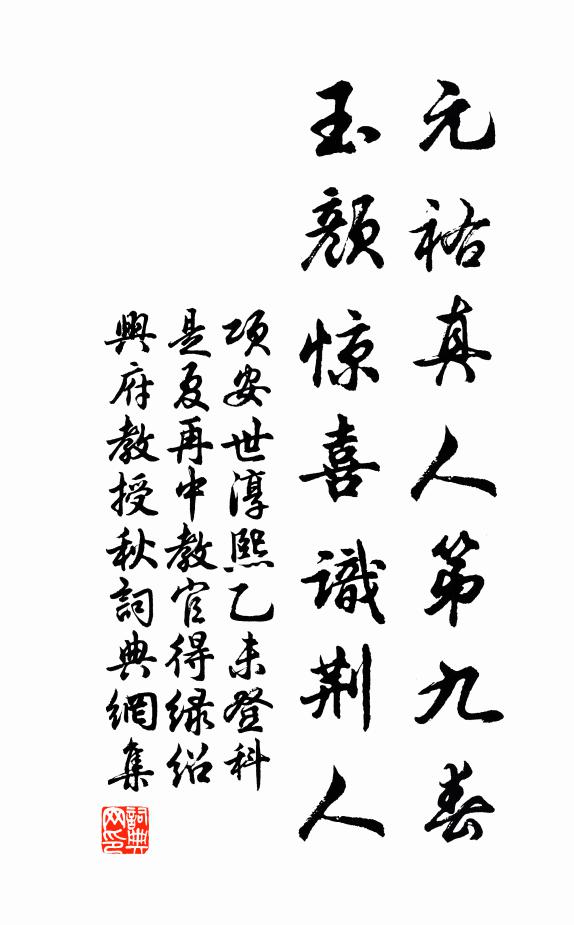 元祐真人第九春
玉顔惊喜識荆人
项安世淳熙乙未登科
是夏再中教官得绿绍
興府教授秋詞典網集
詞典網印